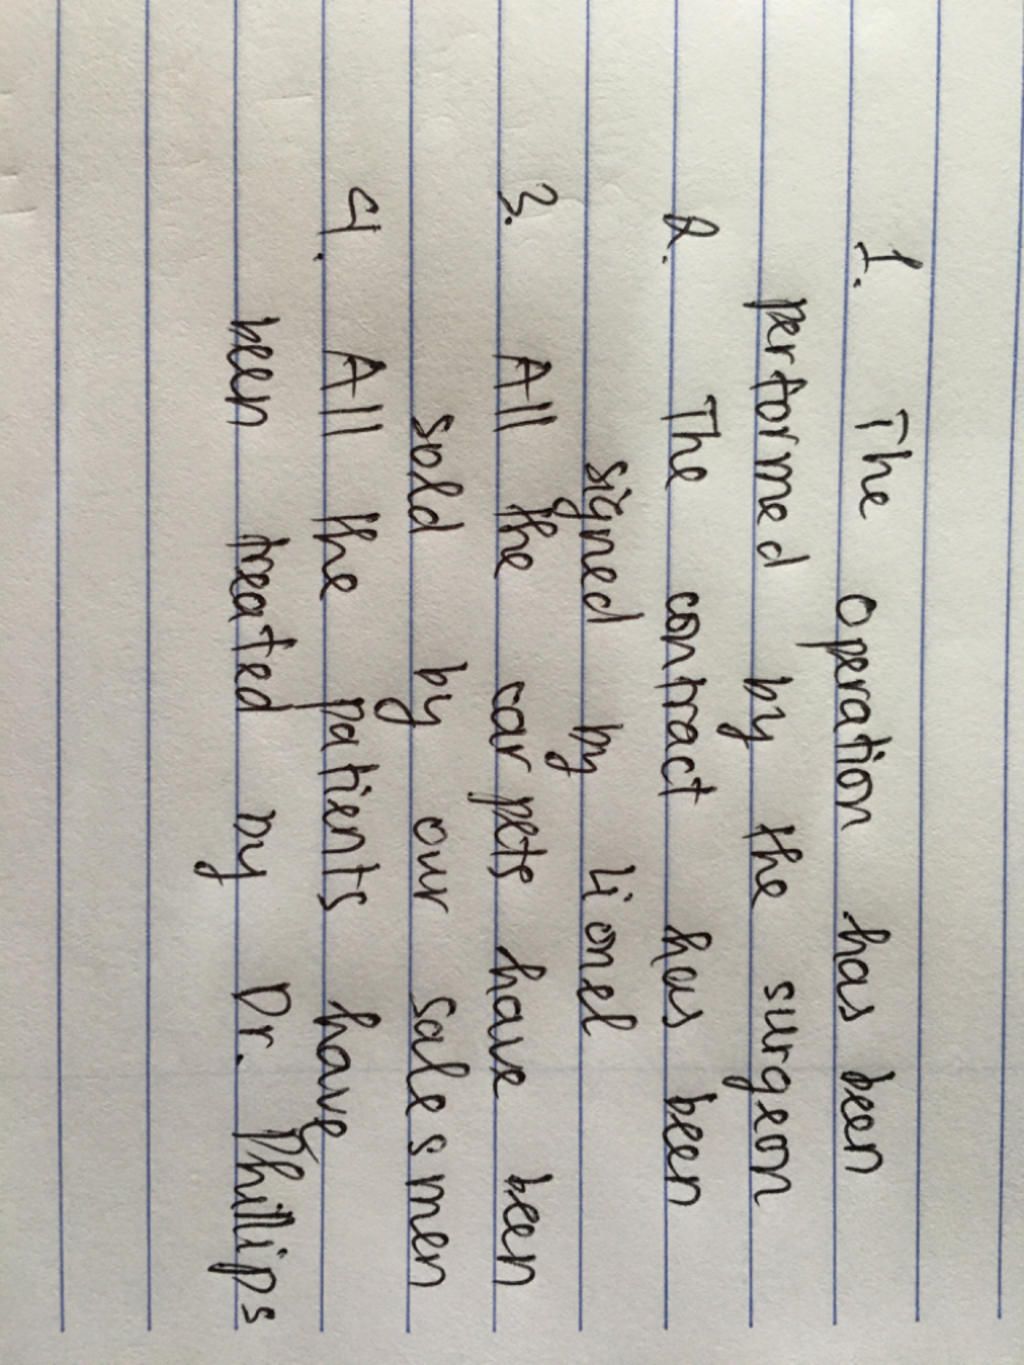 1. The operation has been
performed by the surgeon
2. The contract has been
signed by Lionel
3. All the carpets have been
sold by our salesmen
4. All the patients have
been treated by Dr. Phillips